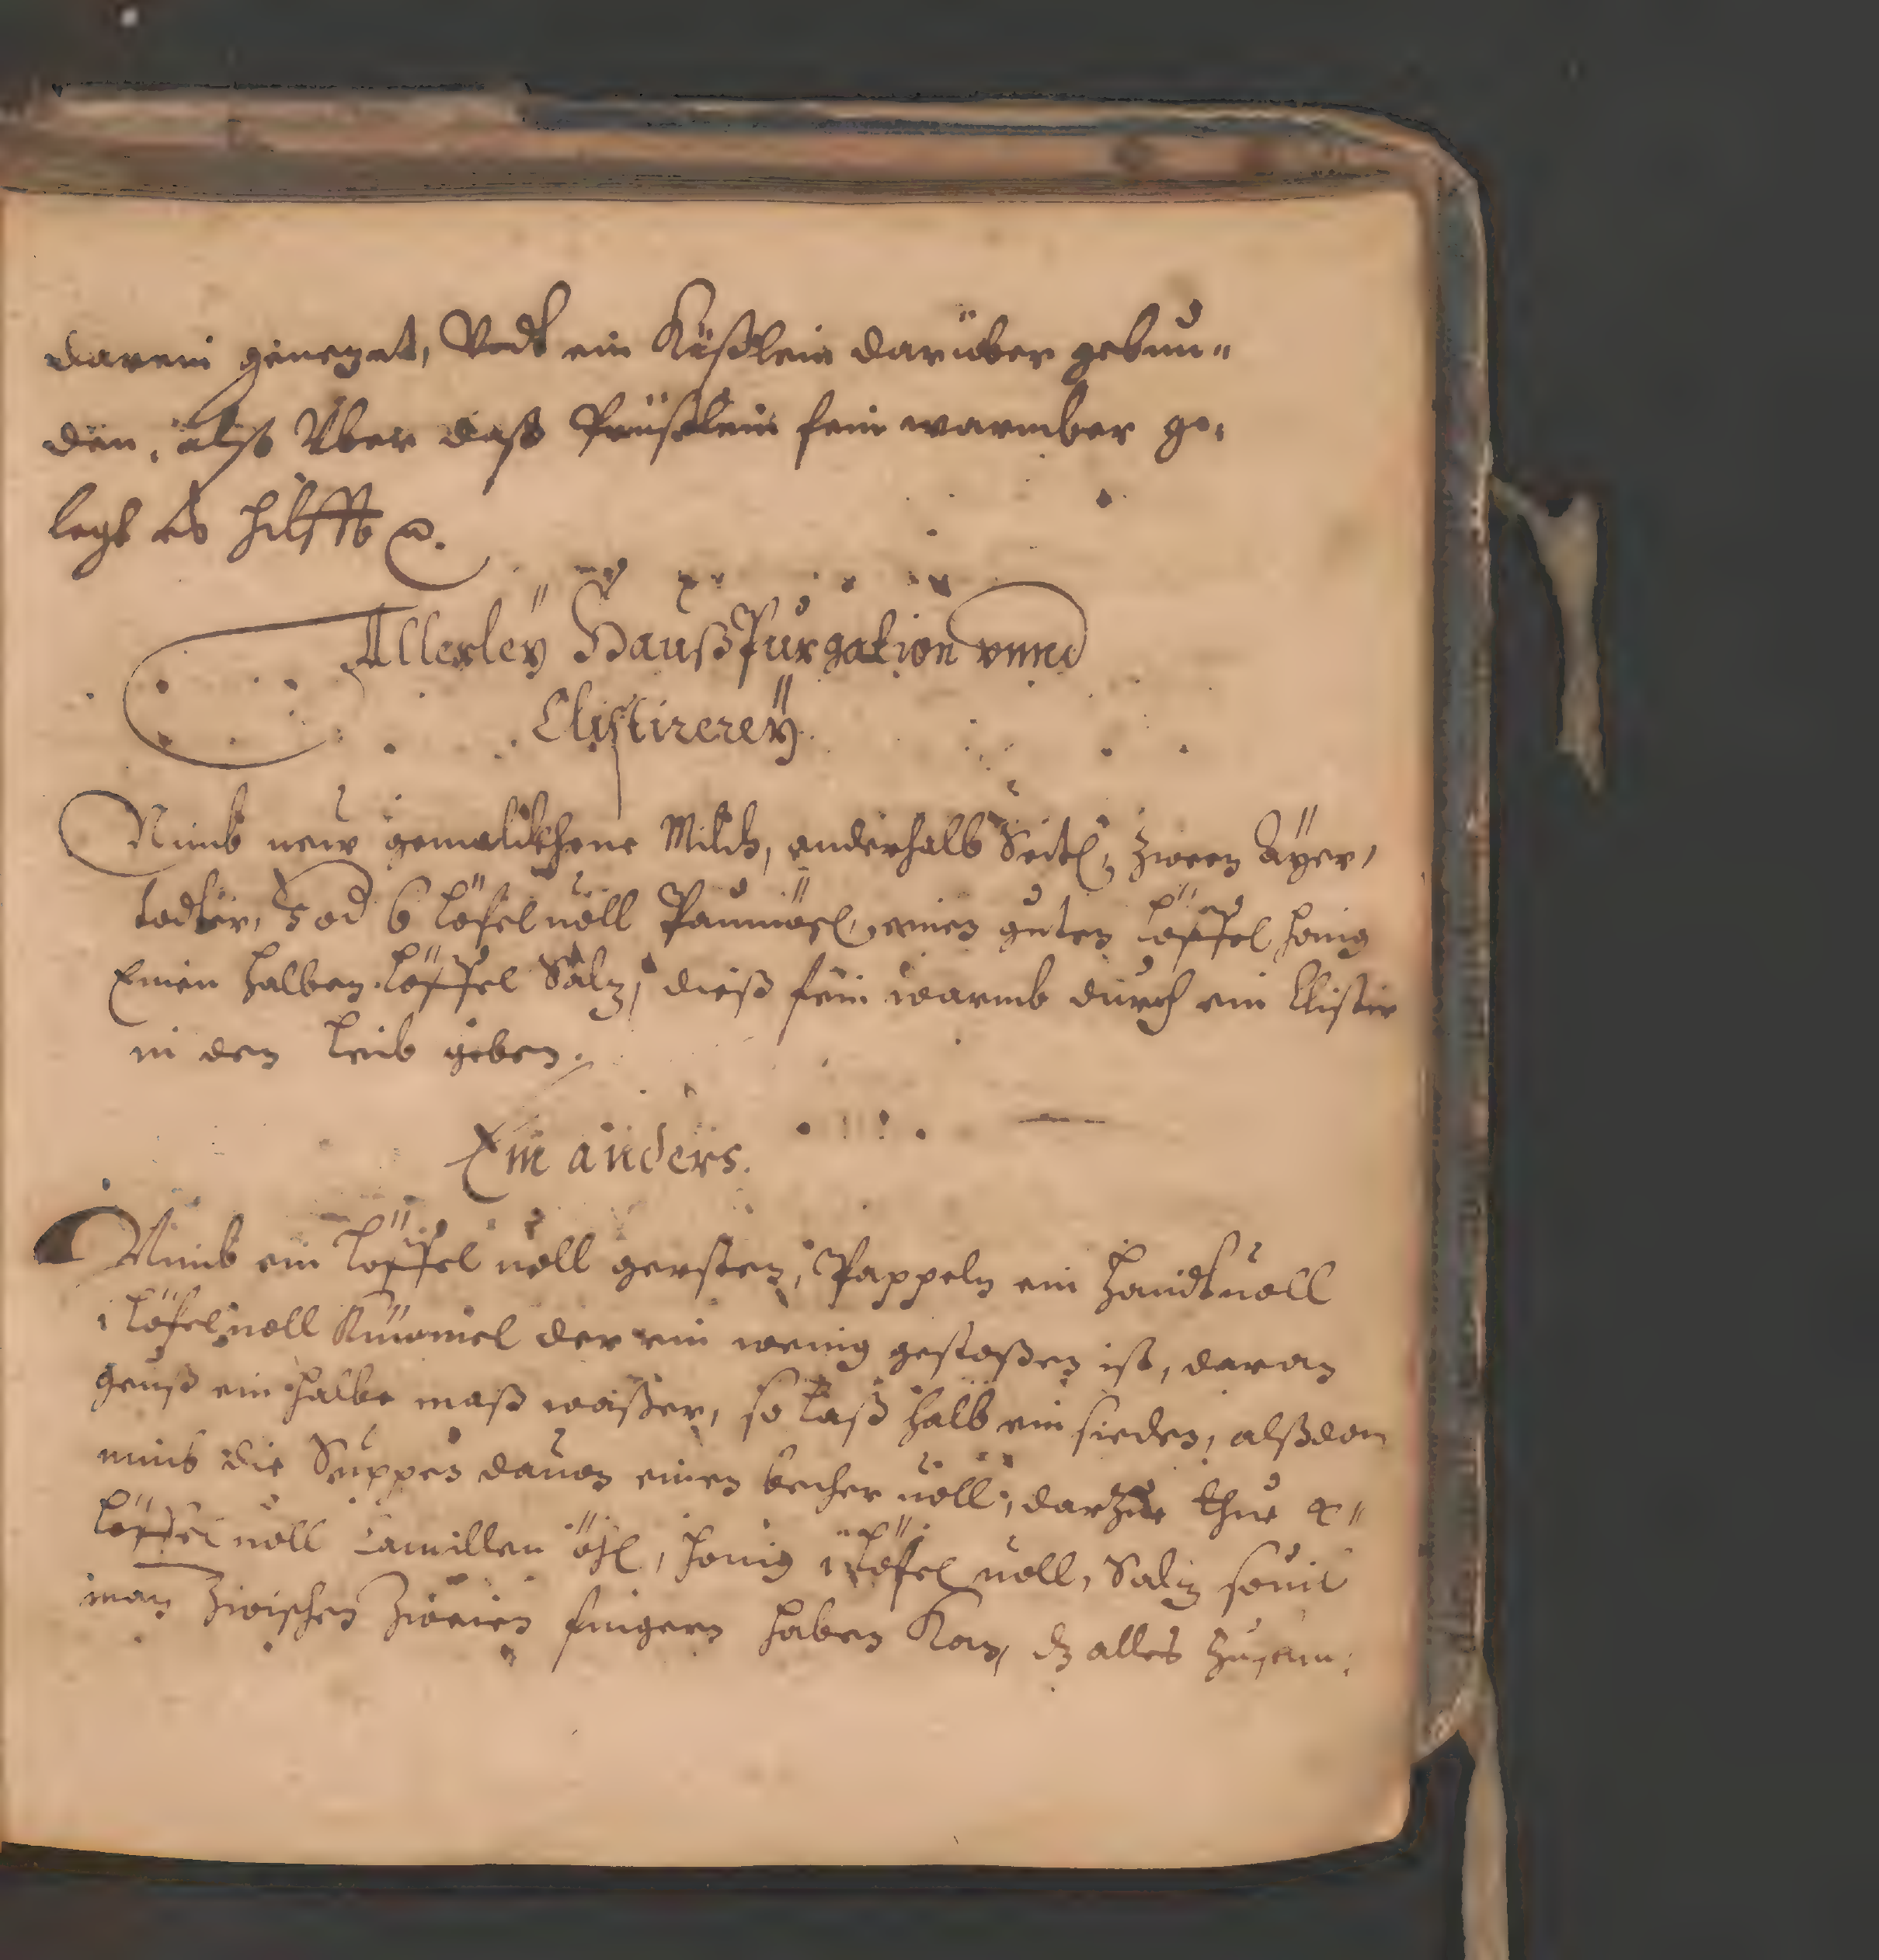 darein genezat, Undt ein Käßlein darüber gebun„
den, alßo Über daß Prüßlein fein warmber ge,
legt es hilfft ꝛc.
Allerleÿ Haußpurgation vnnd
Clistirereÿ.
Nimb new gemalckhene Milch, anderhalb Seitl, zween Äÿer,
todter, 5 od 6 Löfel uoll Paumöhl, einen guten Löffel honig
Einen halben Löffel Saltz, dieß fein warmb durch ein Clistir
in den Leib geben.
Ein anders.
Nimb ein Löffel uoll gersten, Pappeln ein handtuoll
1 Löfel uoll Kümmel der ein wenig gestoßen ist, daran
geuß ein halbe maß waßer, so laß halb ein sieden, alßdan
nimb die Suppen dauon einen becher uoll, darzue thue 4„
Löffel uoll Camillen öhl, honig 1 Löfel uoll, Saltz souil
man zwischen zweien fingern haben kan, dz alles zusam: